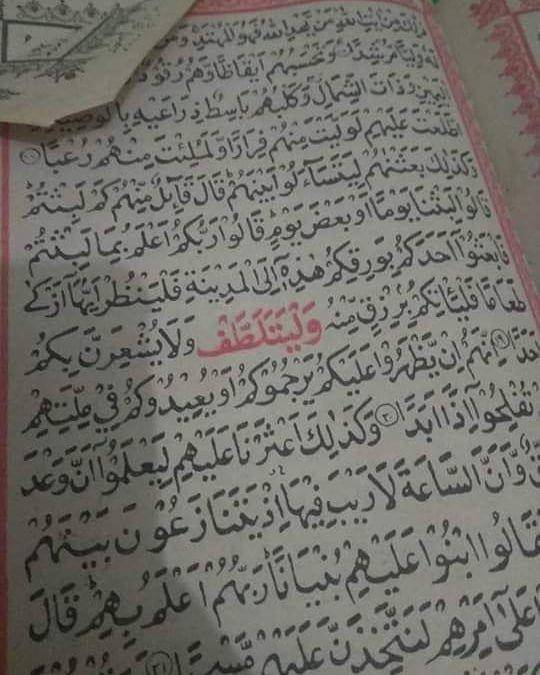 ۶
ذٰلِكَ مِنْ اٰيٰتِ اللّٰهِ مَنْ يَّهْدِ اللّٰهُ فَهُوَ الْمُهْتَدِ وَمَنْ
لَهٗ وَلِيًّا مُّرْشِدًا وَتَحْسَبُهُمْ اَيْقَاظًا وَّهُمْ رُقُوْدٌ
الْيَمِيْنِ وَذَاتَ الشِّمَالِ وَكَلْبُهُمْ بَاسِطٌ ذِرَاعَيْهِ بِالْوَصِيْدِ
اطَّلَعْتَ عَلَيْهِمْ لَوَلَّيْتَ مِنْهُمْ فِرَارًا وَّلَمُلِئْتَ مِنْهُمْ رُعْبًا ۱۸
وَكَذٰلِكَ بَعَثْنٰهُمْ لِيَتَسَآءَلُوْا بَيْنَهُمْ قَالَ قَآئِلٌ مِّنْهُمْ كَمْ لَبِثْتُمْ
قَالُوْا لَبِثْنَا يَوْمًا اَوْ بَعْضَ يَوْمٍ قَالُوْا رَبُّكُمْ اَعْلَمُ بِمَا لَبِثْتُمْ
فَابْعَثُوْٓا اَحَدَكُمْ بِوَرِقِكُمْ هٰذِهٖٓ اِلَى الْمَدِيْنَةِ فَلْيَنْظُرْ اَيُّهَآ اَزْكٰى
طَعَامًا فَلْيَاْتِكُمْ بِرِزْقٍ مِّنْهُ وَلْيَتَلَطَّفْ وَلَا يُشْعِرَنَّ بِكُمْ
اَحَدًا ۱۹ اِنَّهُمْ اِنْ يَّظْهَرُوْا عَلَيْكُمْ يَرْجُمُوْكُمْ اَوْ يُعِيْدُوْكُمْ فِيْ مِلَّتِهِمْ
تُفْلِحُوْٓا اِذًا اَبَدًا ۲۰ وَكَذٰلِكَ اَعْثَرْنَا عَلَيْهِمْ لِيَعْلَمُوْٓا اَنَّ وَعْدَ
وَّاَنَّ السَّاعَةَ لَا رَيْبَ فِيْهَا اِذْ يَتَنَازَعُوْنَ بَيْنَهُمْ
فَقَالُوا ابْنُوْا عَلَيْهِمْ بُنْيَانًا رَبُّهُمْ اَعْلَمُ بِهِمْ قَالَ
عَلٰٓى اَمْرِهِمْ لَنَتَّخِذَنَّ عَلَيْهِمْ مَّسْجِدًا ۲۱